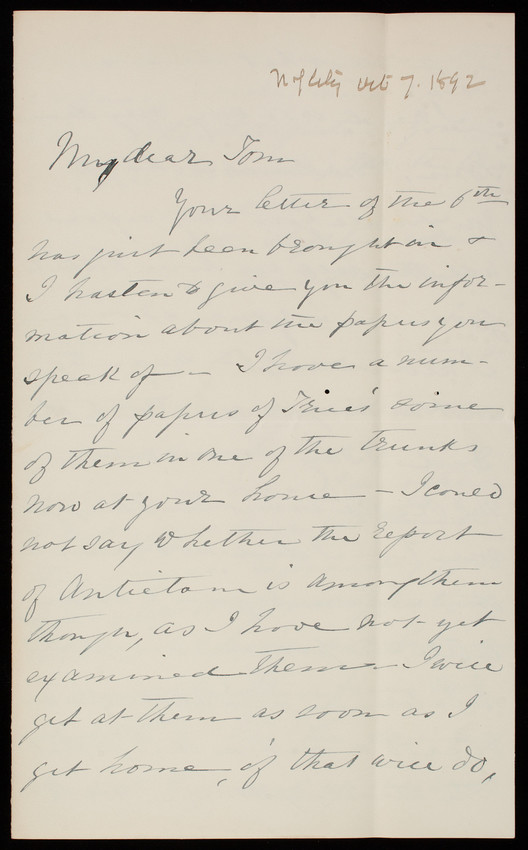 Oct 7. 1892
My dear Tom
Your letter of the 6th
has just been brought in &
I hasten to give you the infor-
mation about the papers you
speak of - I have a num-
ber of papers of True's some
of them in one of the trunks
now at your home - I could
not say whether the report
of Antietam is among them
though, as I have not yet
examined them - I will
get at them as soon as I
get home, if that will do,